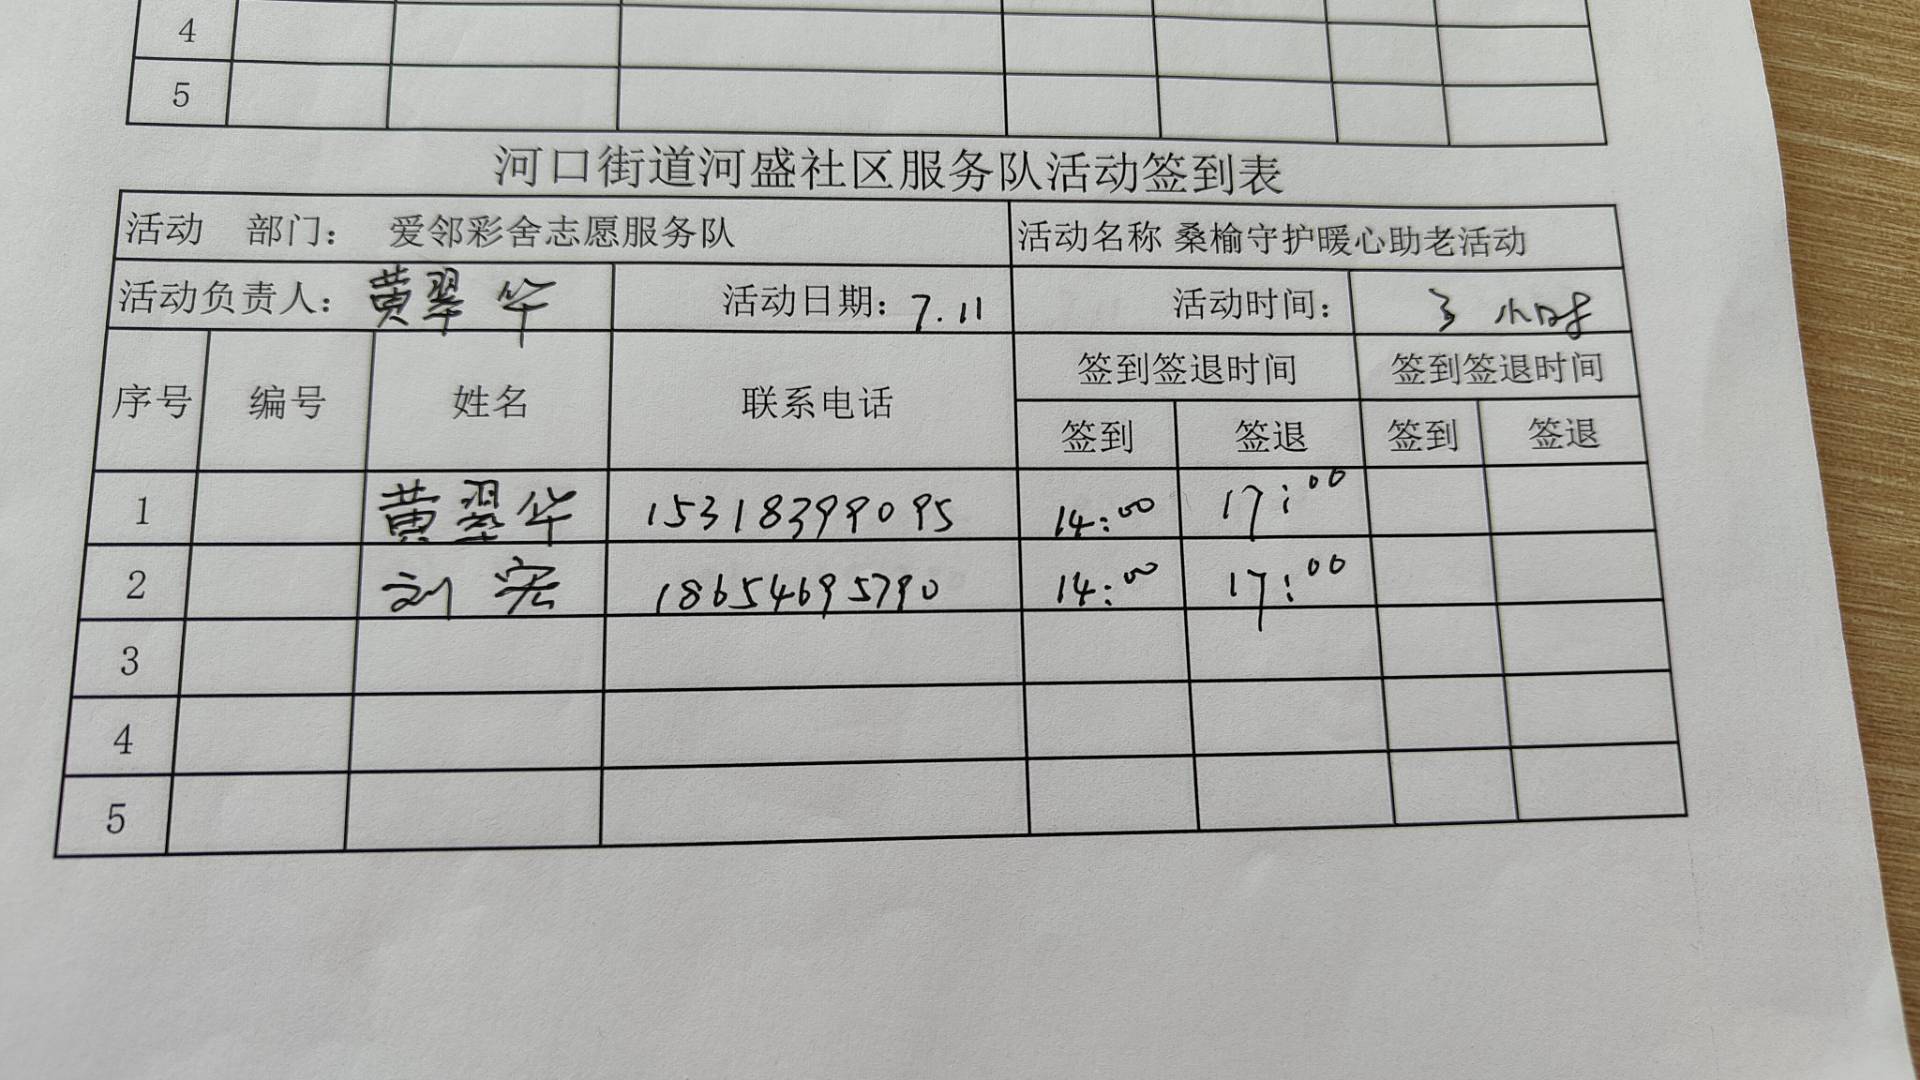 4
5
河口街道河盛社区服务队活动签到表
活动 部门： 爱邻彩舍志愿服务队 活动名称 桑榆守护暖心助老活动
活动负责人： 黄翠华 活动日期： 7.11 活动时间： 3 小时
序号 编号 姓名 联系电话 签到签退时间 签到签退时间
签到 签退 签到 签退
1 黄翠华 15318399095 14:00 17:00
2 刘宏 18654695790 14:00 17:00
3
4
5